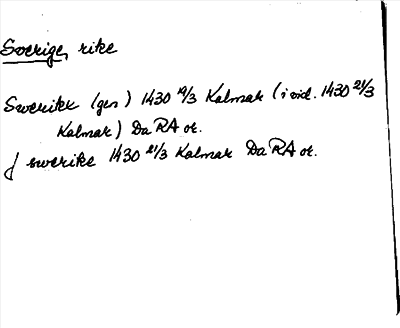 Sverige, rike
Swerikx (gen) 1430 19/3 Kalmar (i vid. 1430 21/3
Kalmar) Da RA or.
j swerike 1430 21/3 Kalmar Da RA or.